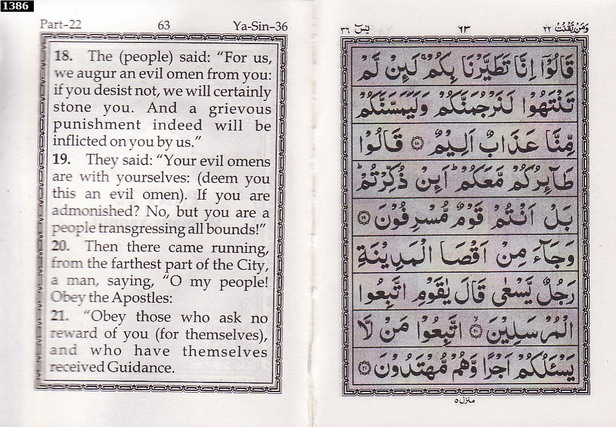 1386
Part–22 63 Ya-Sin–36
18. The (people) said: “For us,
we augur an evil omen from you:
if you desist not, we will certainly
stone you. And a grievous
punishment indeed will be
inflicted on you by us.”
19. They said: “Your evil omens
are with yourselves: (deem you
this an evil omen). If you are
admonished? No, but you are a
people transgressing all bounds!”
20. Then there came running,
from the farthest part of the City,
a man, saying, “O my people!
Obey the Apostles:
21. “Obey those who ask no
reward of you (for themselves),
and who have themselves
received Guidance.
وَمَن يَّقْنُتْ ٢٢ ٦٣ يٰسٓ ٣٦
قَالُوْٓا اِنَّا تَطَيَّرْنَا بِكُمْ ۚ لَئِنْ لَّمْ
تَنْتَهُوْا لَنَرْجُمَنَّكُمْ وَلَيَمَسَّنَّكُمْ
مِّنَّا عَذَابٌ اَلِيْمٌ ۝١٨ قَالُوْا
طَآئِرُكُمْ مَّعَكُمْ ؕ اَئِنْ ذُكِّرْتُمْ ؕ
بَلْ اَنْتُمْ قَوْمٌ مُّسْرِفُوْنَ ۝١٩
وَجَآءَ مِنْ اَقْصَا الْمَدِيْنَةِ
رَجُلٌ يَّسْعٰى قَالَ يٰقَوْمِ اتَّبِعُوا
الْمُرْسَلِيْنَ ۝٢٠ اتَّبِعُوْا مَنْ لَّا
يَسْـَٔلُكُمْ اَجْرًا وَّهُمْ مُّهْتَدُوْنَ ۝٢١
منزل ٥